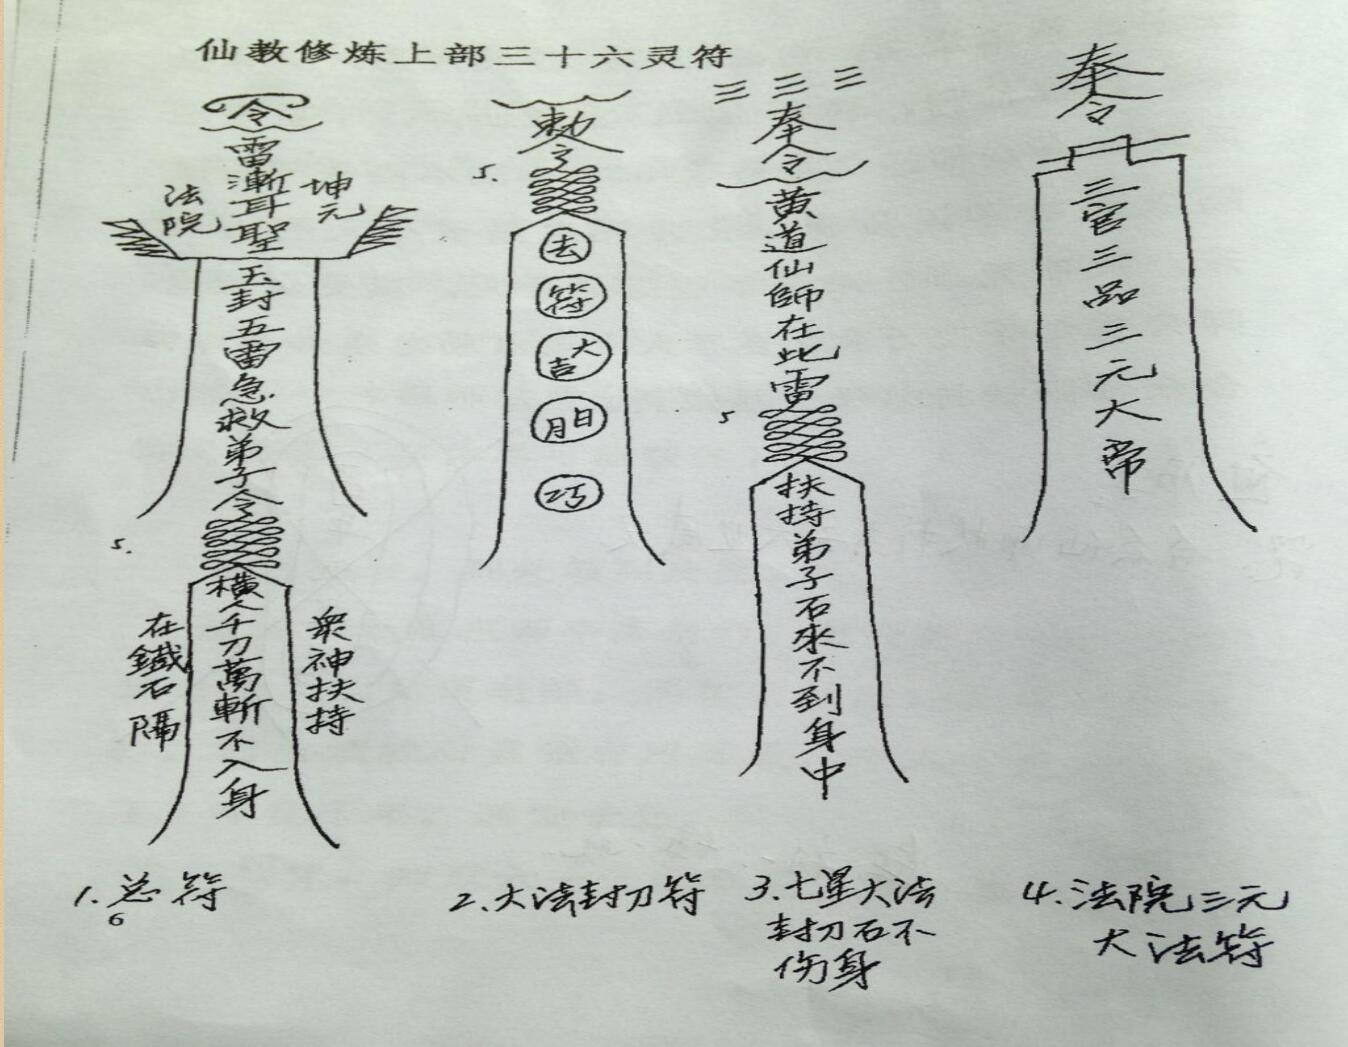 仙教修炼上部三十六灵符
令
雷漸耳聖
法院
坤元
玉封五雷急救弟子令
5.
橫人千刀萬斬不入身
在鐵石隔
衆神扶持
1.总符
6
勅令
5.
去
符
大吉
日月
巧
2.大法封刀符
三三三
奉令
黄道仙師在此雷
5
扶持弟子石來不到身中
3.七星大法
封刀石不
伤身
奉令
三官三品三元大帝
4.法院三元
大法符